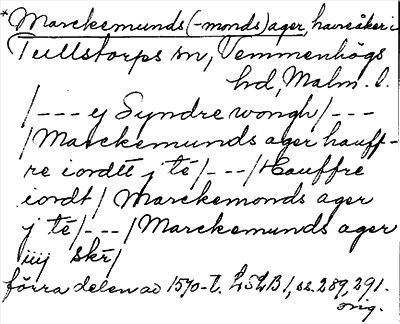 *Marckemunds (-monds) ager, havreåker i
Tullstorps sn, Vemmenhögs
hd, Malm. l.
/--- ej Syndre wongh/---
/Marckemunds ager hauff-
re iordtt j té/---/Hauffre
iordt/ Marckemonds ager
j té/---/Marckemunds ager
iiij skr/
förra delen av 1570-t. LSLB 1, ss. 289, 291.
orig.